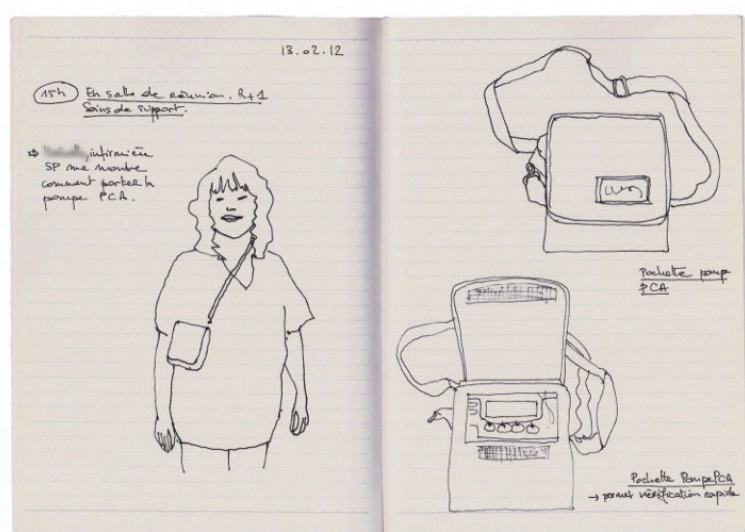 13.02.12
15h En salle de réunion. R+1
Soins de support.
⇨ infirmière
SP me montre
comment porter la
pompe PCA.
Pochette pompe
PCA
Pochette Pompe PCA
→ permet vérification rapide